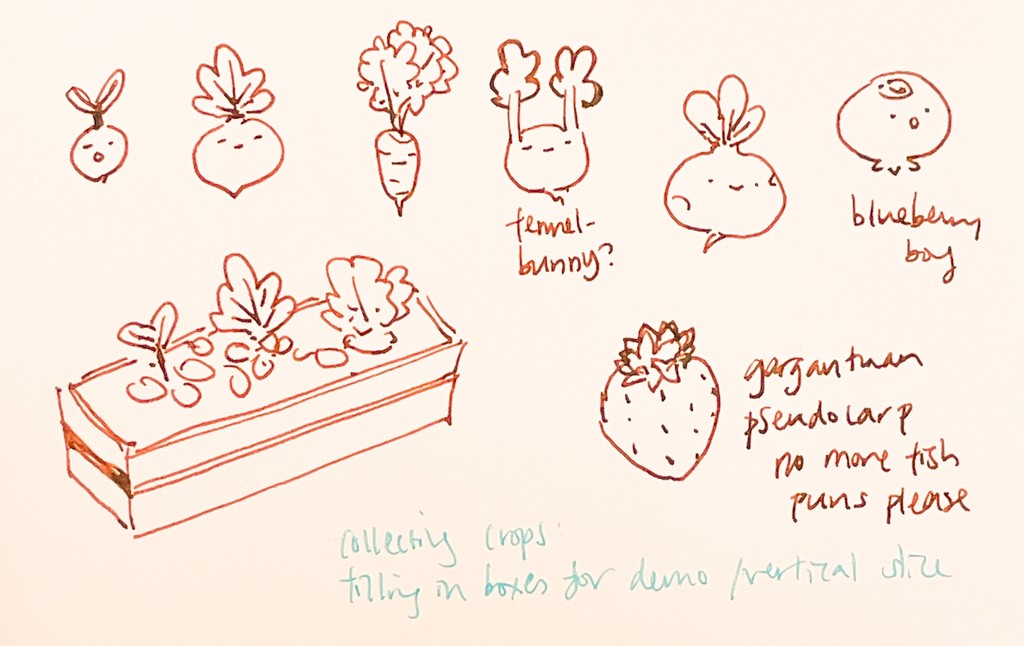 fennel-
bunny?
blueberry
boy
gargantuan
pseudocarp
no more fish
puns please
collecting crops:
filling in boxes for demo/vertical slice